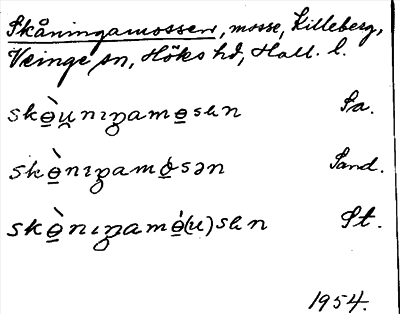 Skåningamossen, mosse, Lilleberg,
Veinge sn, Höks hd, Hall. l.
skò̱u̯nıŋamo̱sen Sa.
skò̱nıŋamó̱sən Sand.
skò̱nıŋamó̱(u)sen St.
1954.